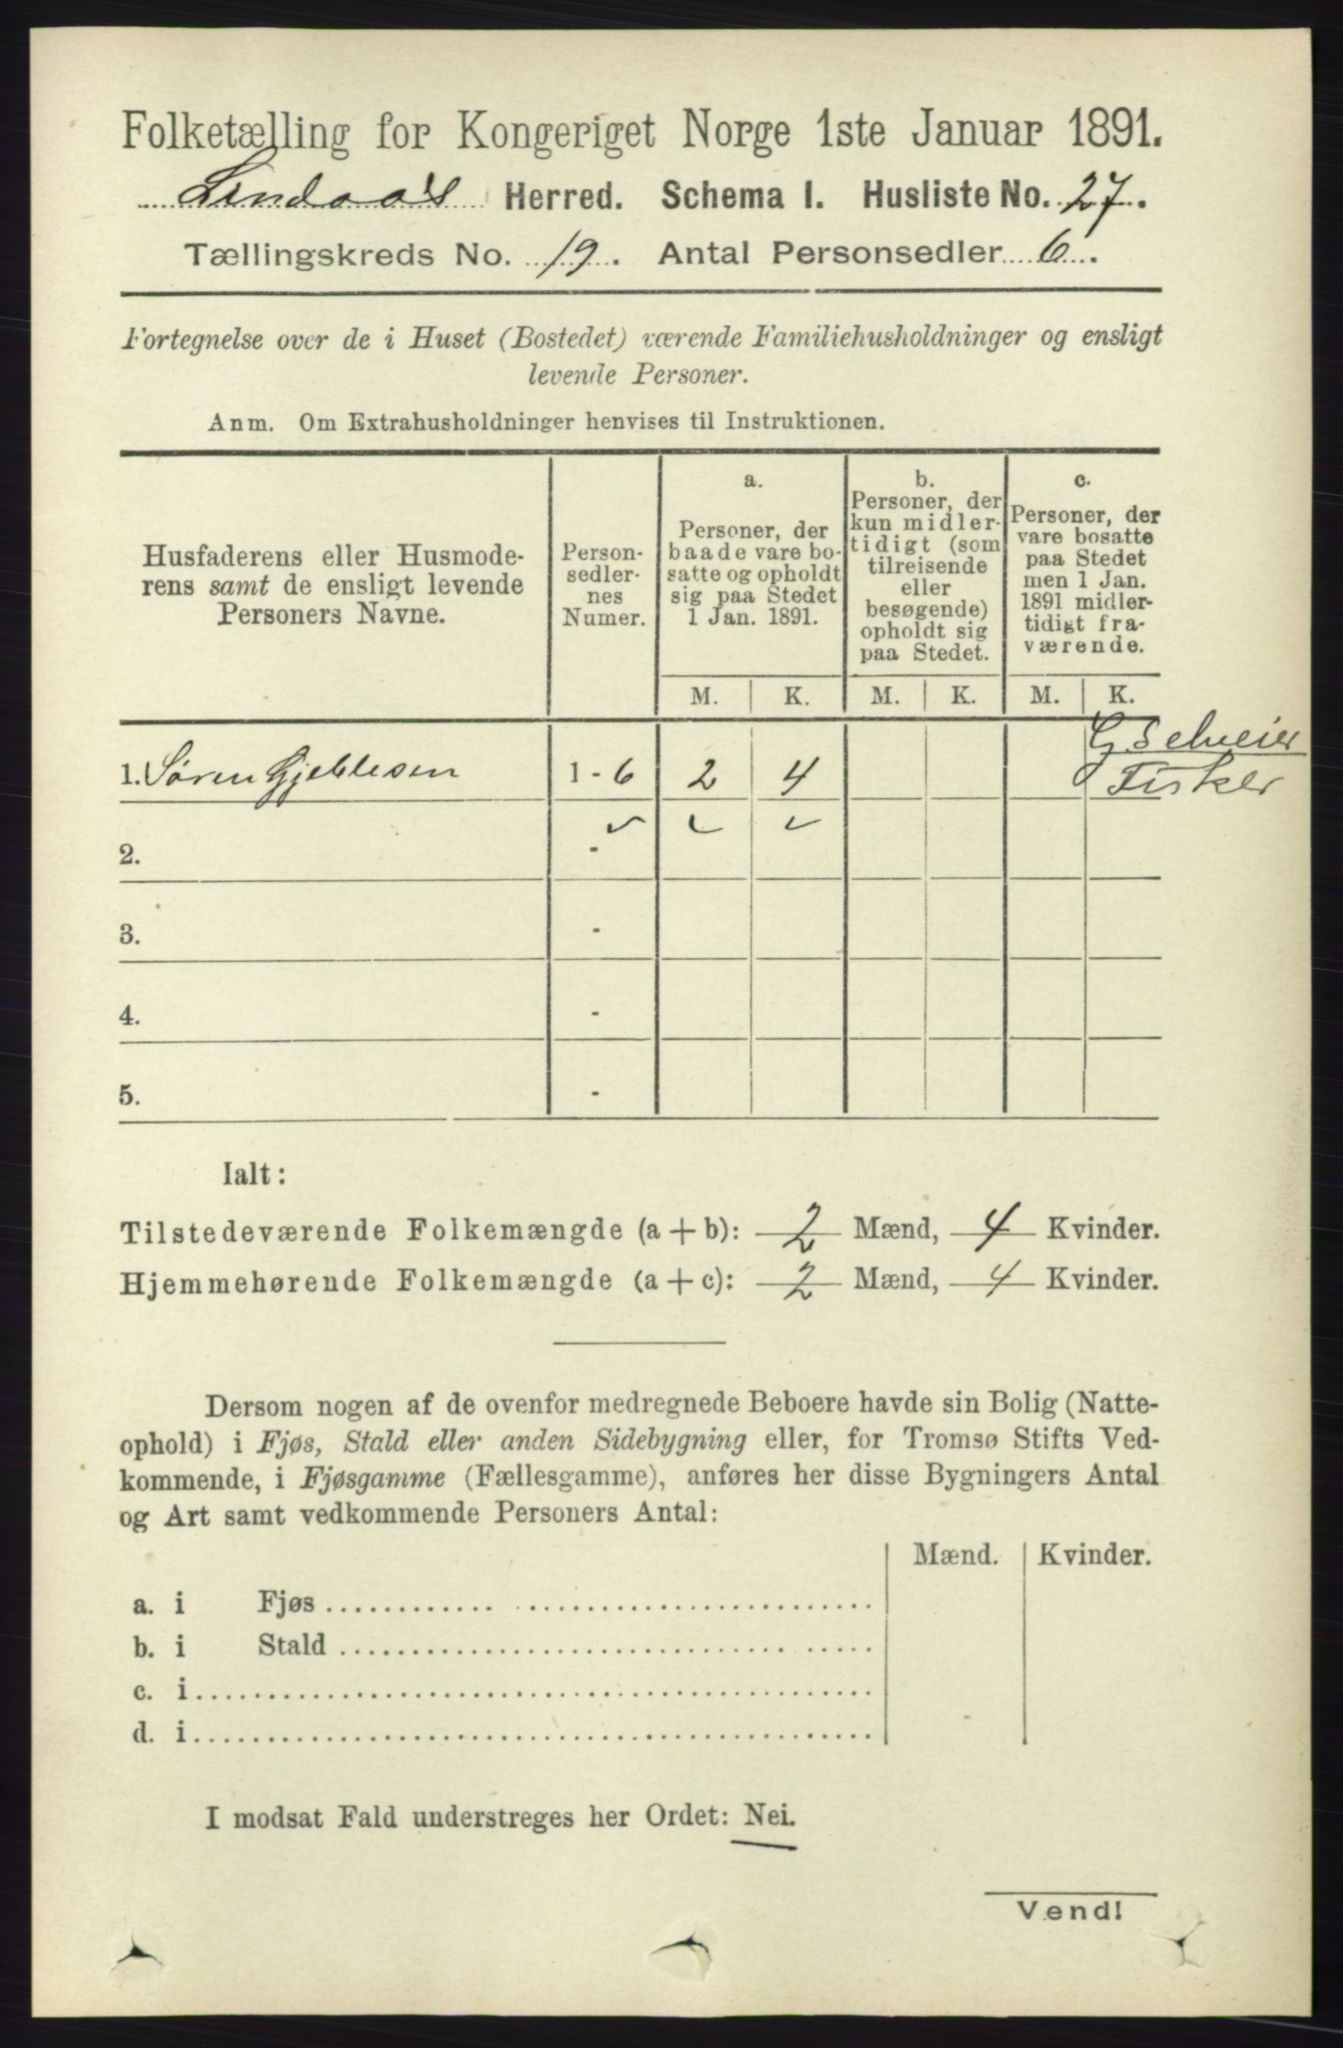 Folketælling for Kongeriget Norge 1ste Januar 1891.
Lindaas Herred. Schema I. Husliste No. 27.
Tællingskreds No. 19. Antal Personsedler 6.
Fortegnelse over de i Huset (Bostedet) værende Familiehusholdninger og ensligt
levende Personer.
Anm. Om Extrahusholdninger henvises til Instruktionen.
Husfaderens eller Husmode-
rens samt de ensligt levende
Personers Navne.
Person-
sedler-
nes
Numer.
a.
Personer, der
baade vare bo-
satte og opholdt
sig paa Stedet
1 Jan. 1891.
b.
Personer, der
kun midler-
tidigt (som
tilreisende
eller
besøgende)
opholdt sig
paa Stedet.
c.
Personer, der
vare bosatte
paa Stedet
men 1 Jan.
1891 midler-
tidigt fra-
værende.
M. K. M. K. M. K.
G. Selveier
1. Søren Gjeblesen 1 - 6 2 4 Fisker
2. -
3. -
4. -
5. -
Ialt:
Tilstedeværende Folkemængde (a + b): 2 Mænd, 4 Kvinder.
Hjemmehørende Folkemængde (a + c): 2 Mænd, 4 Kvinder.
Dersom nogen af de ovenfor medregnede Beboere havde sin Bolig (Natte-
ophold) i Fjøs, Stald eller anden Sidebygning eller, for Tromsø Stifts Ved-
kommende, i Fjøsgamme (Fællesgamme), anføres her disse Bygningers Antal
og Art samt vedkommende Personers Antal:
Mænd. Kvinder.
a. i Fjøs
b. i Stald
c. i
d. i
I modsat Fald understreges her Ordet: Nei.
Vend!